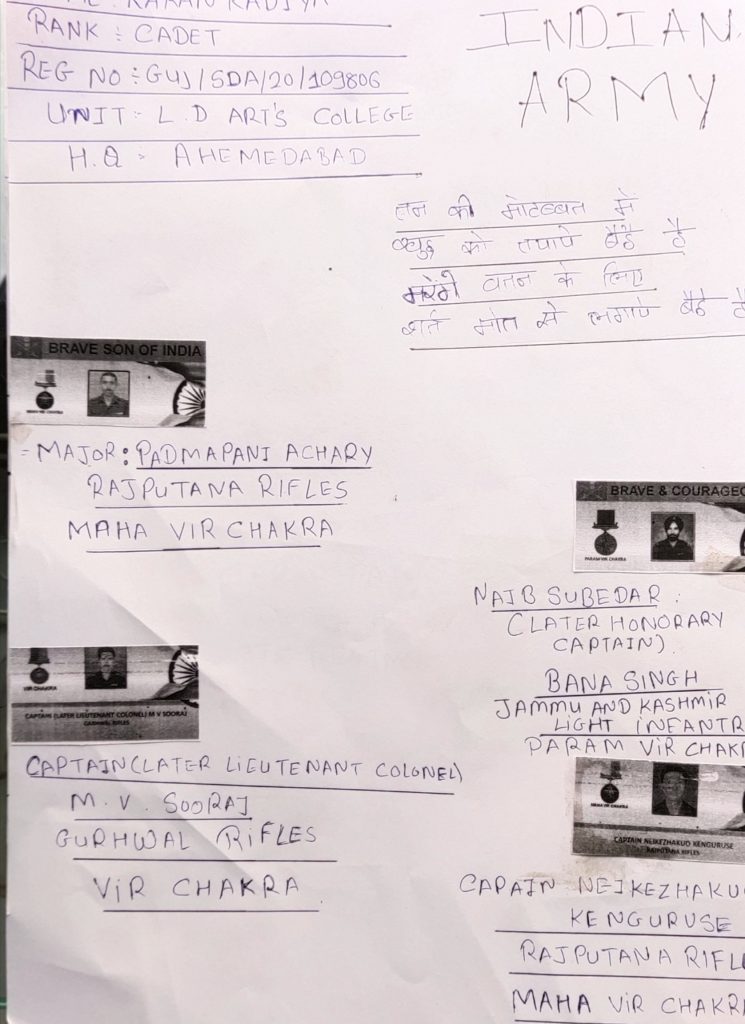 RANK : CADET
REG NO : GUJ/SDA/20/109806
UNIT : L.D ART'S COLLEGE
H.Q : AHEMEDABAD
INDIAN
ARMY
तन की मोहब्बत में
खुद को तपाये बैठे है
मरेंगे वतन के लिए
शर्त मौत से लगाये बैठे है
BRAVE SON OF INDIA
MAHA VIR CHAKRA
- MAJOR: PADMAPANI ACHARY
RAJPUTANA RIFLES
MAHA VIR CHAKRA
VIR CHAKRA
CAPTAIN (LATER LIEUTENANT COLONEL) M V SOORAJ
GARHWAL RIFLES
CAPTAIN (LATER LIEUTENANT COLONEL)
M. V. SOORAJ
GURHWAL RIFLES
VIR CHAKRA
BRAVE & COURAGEO
PARAM VIR CHAKRA
NAIB SUBEDAR :
(LATER HONORARY
CAPTAIN).
BANA SINGH
JAMMU AND KASHMIR
LIGHT INFANTR
PARAM VIR CHAKR
MAHA VIR CHAKRA
CAPTAIN NEIKEZHAKUO KENGURUSE
RAJPUTANA RIFLES
CAPAIN NEIKEZHAKUO
KENGURUSE
RAJPUTANA RIFL
MAHA VIR CHAKRA